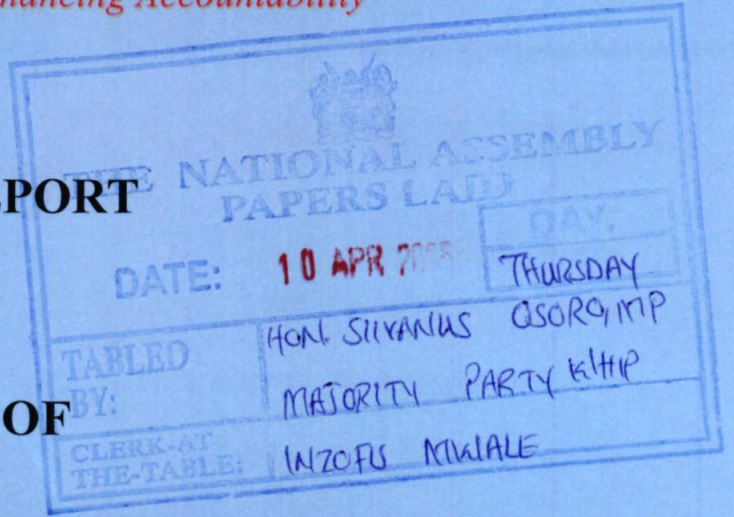 nhancing Accountability
THE NATIONAL ASSEMBLY
PAPERS LAID
EPORT
DATE: 10 APR
DAY.
THURSDAY
TABLED BY:
HON. SILVANUS OSORO, MP
MAJORITY PARTY WHIP
OF
CLERK-AT THE-TABLE:
INZOFU MWALE